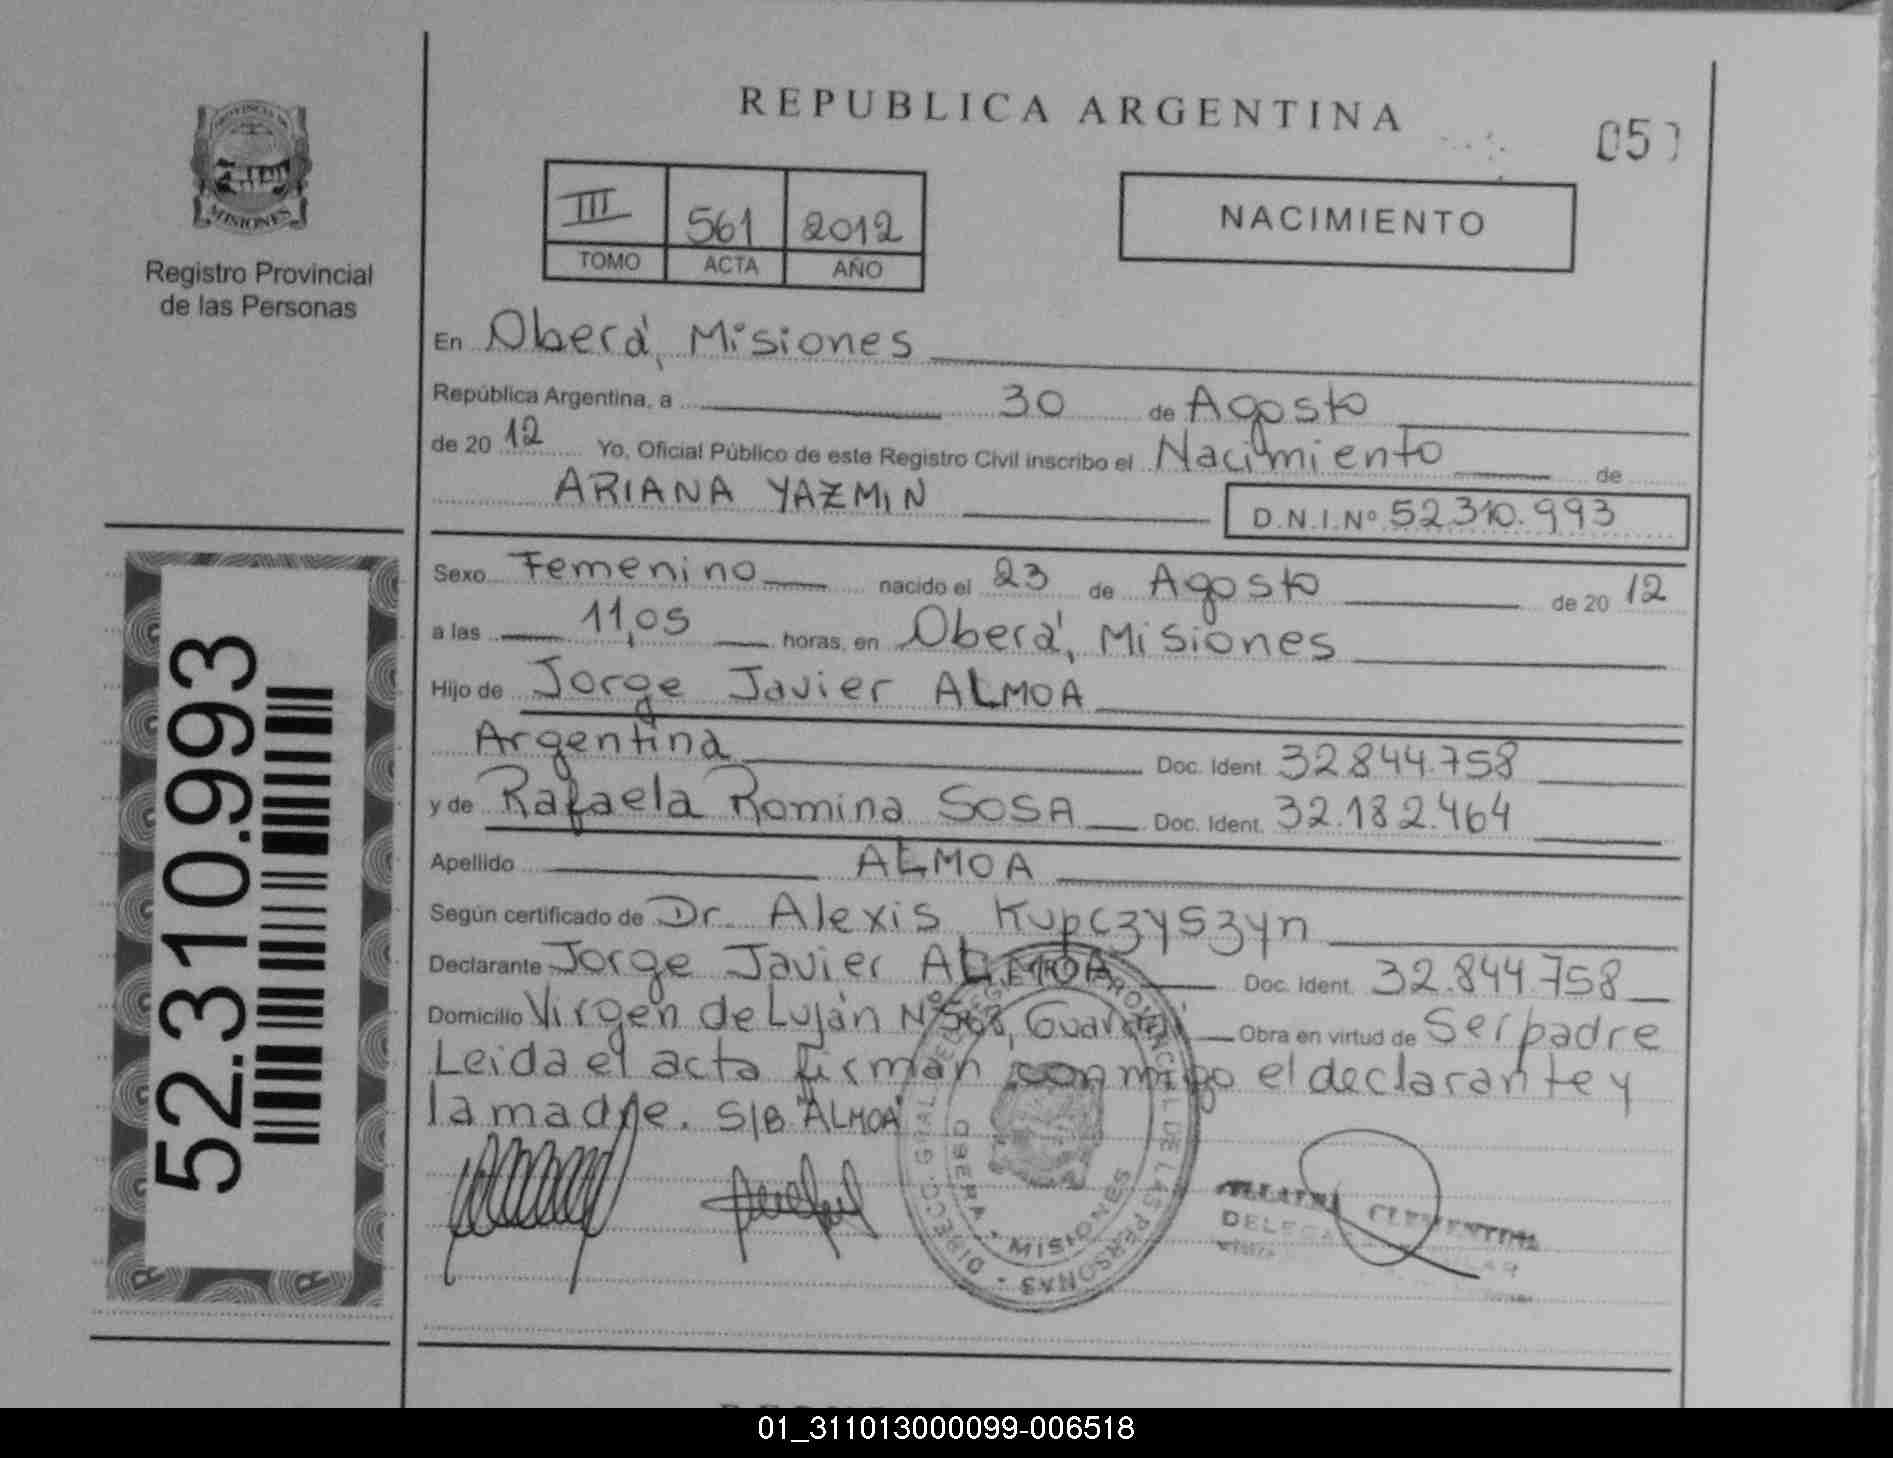 REPUBLICA ARGENTINA
05
PROVINCIA DE
MISIONES
Registro Provincial
de las Personas
III 561 2012
TOMO ACTA AÑO
NACIMIENTO
En Oberá, Misiones
República Argentina, a 30 de Agosto
de 20 12 Yo, Oficial Público de este Registro Civil inscribo el Nacimiento de
ARIANA YAZMIN D.N.I.Nº 52.310.993
Sexo Femenino nacido el 23 de Agosto de 20 12
a las 11,05 horas, en Oberá, Misiones
Hijo de Jorge Javier ALMOA
Argentina Doc. Ident. 32.844.758
y de Rafaela Romina SOSA Doc. Ident. 32.182.464
Apellido ALMOA
Según certificado de Dr. Alexis Kupczyszyn
Declarante Jorge Javier ALMOA Doc. Ident. 32.844.758
Domicilio Virgen de Luján Nº 568, Guaraní Obra en virtud de Ser padre
Leida el acta firman conmigo el declarante y
la madre. S/B "ALMOA"
DIRECC. GRAL. DEL REG. PROVINCIAL DE LAS PERSONAS
OBERA - MISIONES
CLEMENTINA
52.310.993
01_311013000099-006518